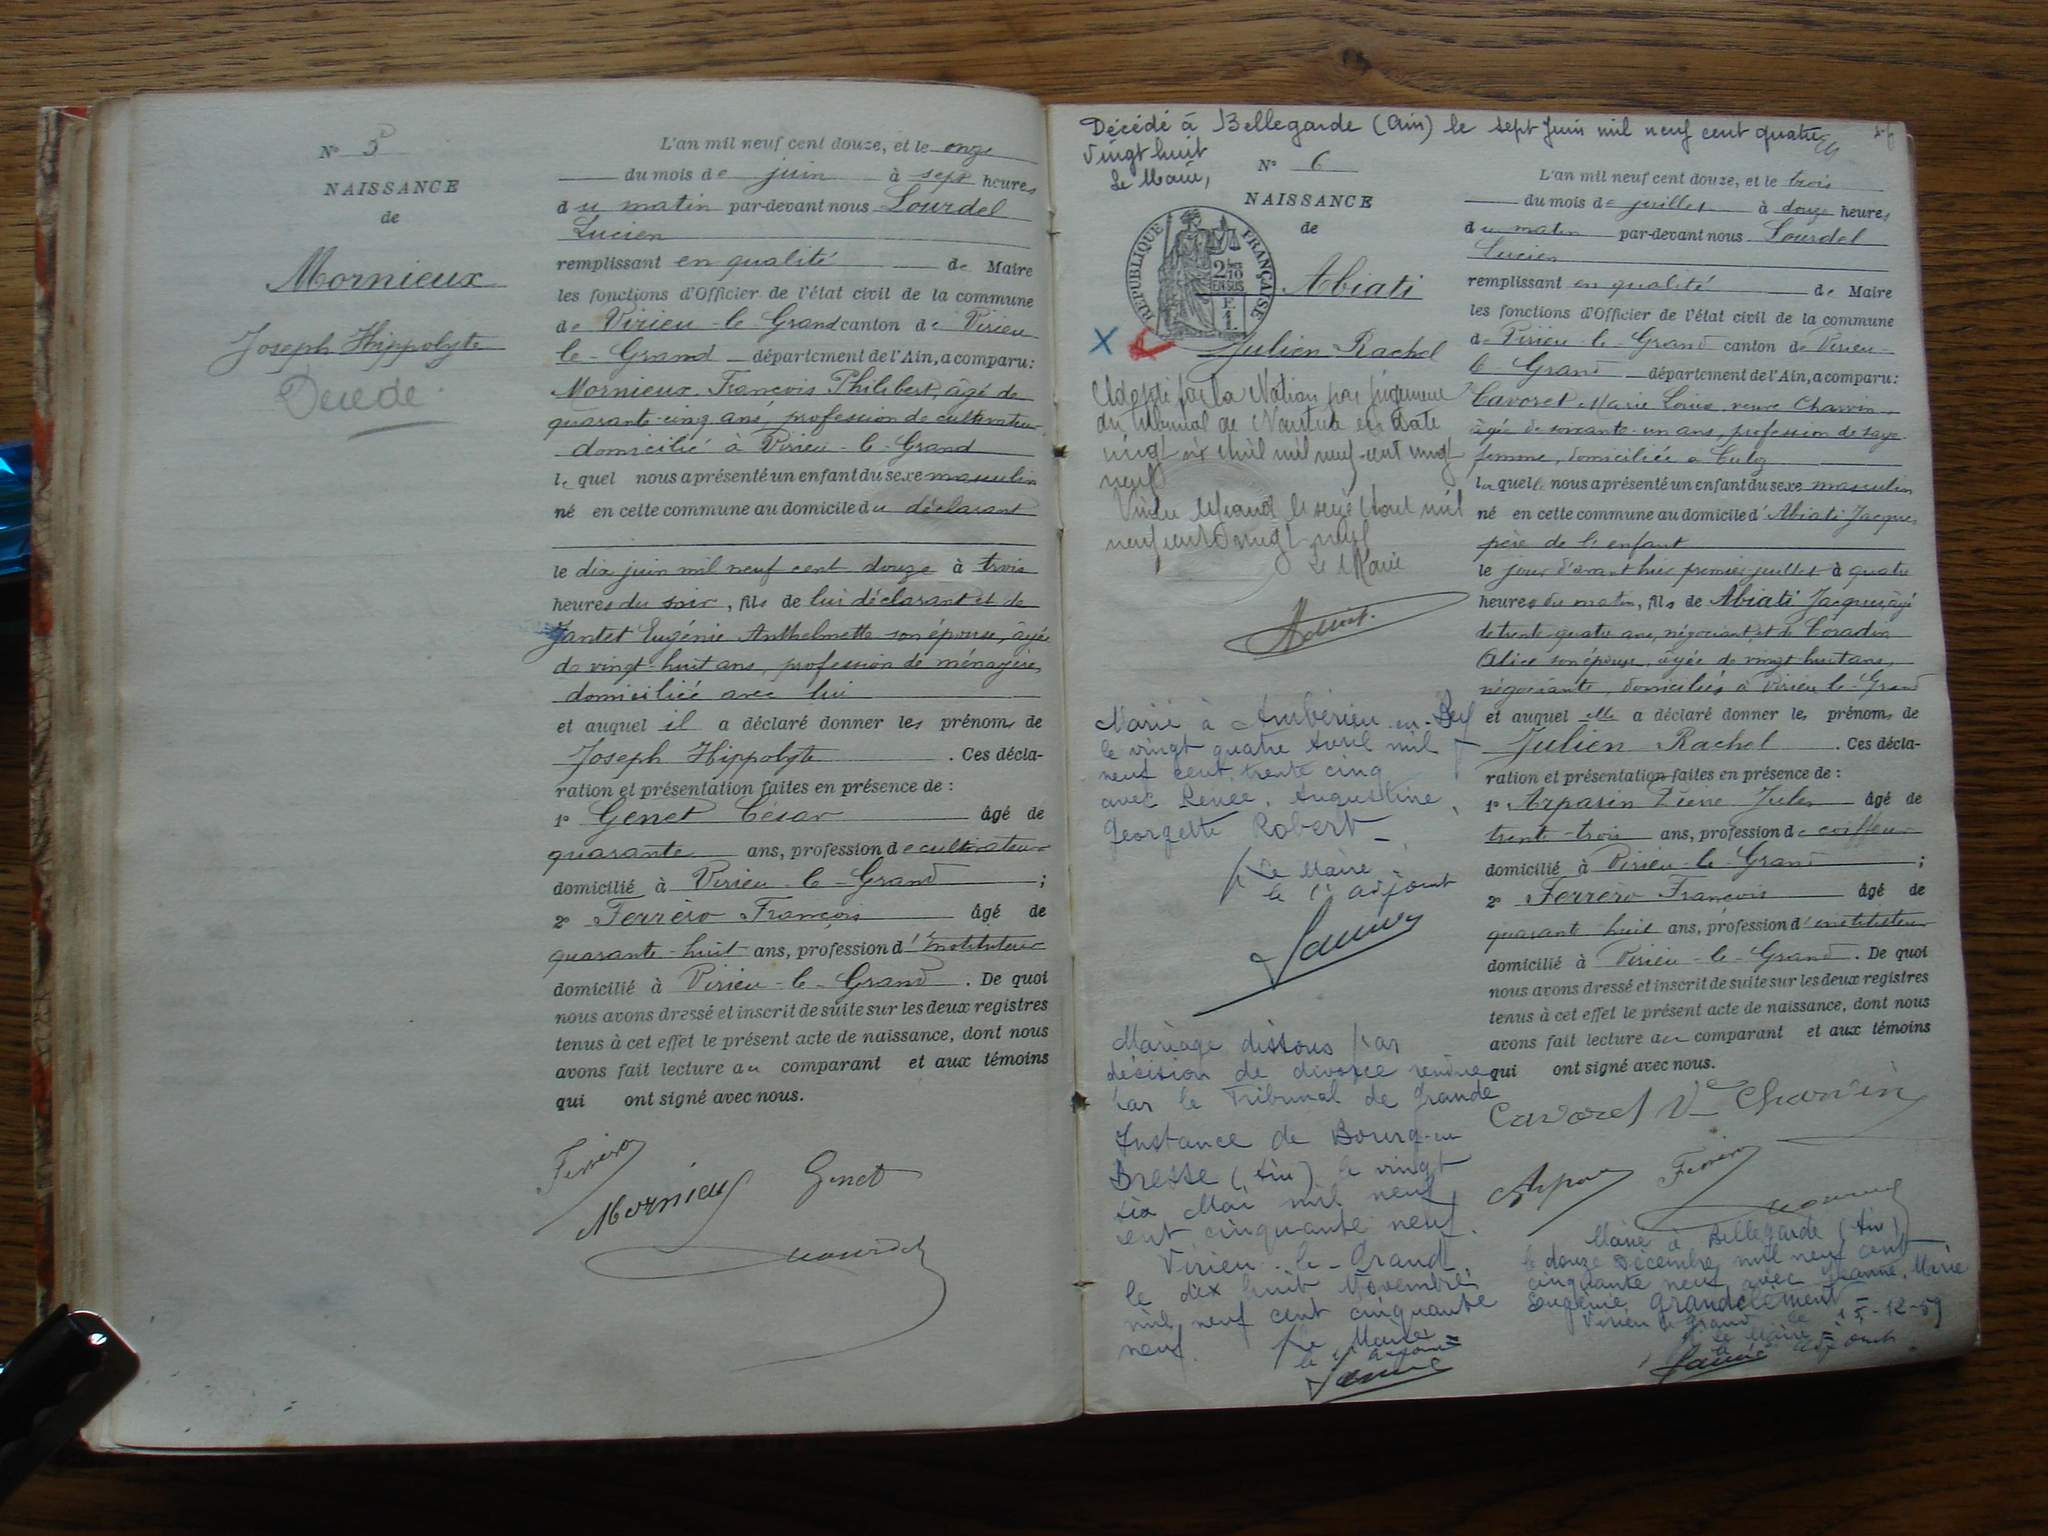 N° 5
NAISSANCE
de
Mornieux
Joseph Hippolyte
Décédé.
L'an mil neuf cent douze, et le onze
du mois de juin à sept heures
du matin par-devant nous Lourdel
Lucien
remplissant en qualité de Maire
les fonctions d'Officier de l'état civil de la commune
de Virieu-le-Grand canton de Virieu
le-Grand département de l'Ain, a comparu:
Mornieux François Philibert, âgé de
quarante-cinq ans, profession de cultivateur
domicilié à Virieu-le-Grand
lequel nous a présenté un enfant du sexe masculin
né en cette commune au domicile du déclarant
le dix juin mil neuf cent douze à trois
heures du soir, fils de lui déclarant et de
Jantet Eugénie Anthelmette son épouse, âgée
de vingt-huit ans, profession de ménagère,
domiciliée avec lui
et auquel il a déclaré donner les prénoms de
Joseph Hippolyte. Ces décla-
ration et présentation faites en présence de :
1° Genet César âgé de
quarante ans, profession de cultivateur
domicilié à Virieu-le-Grand ;
2° Ferréro François âgé de
quarante-huit ans, profession d'instituteur
domicilié à Virieu-le-Grand. De quoi
nous avons dressé et inscrit de suite sur les deux registres
tenus à cet effet le présent acte de naissance, dont nous
avons fait lecture au comparant et aux témoins
qui ont signé avec nous.
Ferréro
Mornieux Genet
Lourdel
Décédé à Bellegarde (Ain) le sept Juin mil neuf cent quatre
Vingt huit
Le Maire,
N° 6
NAISSANCE
de
REPUBLIQUE FRANÇAISE
Abiati
Julien Rachel
Adopté par la Nation par jugement
du tribunal de Nantua en date
vingt six Avril mil neuf-cent vingt
neuf
Virieu le grand le seize Aout mil
neuf cent vingt neuf
Le Maire
Marié à Ambérieu-en-Bey
le vingt quatre Avril mil
neuf cent trente cinq
avec Renée, Augustine,
Georgette Robert
P/ Le Maire
le 1er adjoint
Mariage dissous par
décision de divorce rendue
par le Tribunal de Grande
Instance de Bourg-en
Bresse (Ain) le vingt
six Mai mil neuf
cent cinquante neuf.
Virieu-le-Grand
le dix huit Novembre
mil neuf cent cinquante
neuf.
P/ Le Maire
le 1er adjoint
L'an mil neuf cent douze, et le trois
du mois de juillet à douze heures
du matin par-devant nous Lourdel
Lucien
remplissant en qualité de Maire
les fonctions d'Officier de l'état civil de la commune
de Virieu-le-Grand canton de Virieu-
le Grand département de l'Ain, a comparu:
Cavoret Marie Louise, veuve Charvin
âgée de soixante-un ans, profession de sage-
femme, domiciliée à Culoz
laquelle nous a présenté un enfant du sexe masculin
né en cette commune au domicile d'Abiati Jacques,
père de l'enfant
le jour d'avant hier premier juillet à quatre
heures du matin, fils de Abiati Jacques, âgé
de trente-quatre ans, négociant et de Coradin
Alice son épouse, âgée de vingt huit ans,
négociante, domiciliés à Virieu-le-Grand
et auquel elle a déclaré donner les prénoms de
Julien Rachel. Ces décla-
ration et présentation faites en présence de :
1° Arpasin Pierre Jules âgé de
trente-trois ans, profession de coiffeur
domicilié à Virieu-le-Grand ;
2° Ferréro François âgé de
quarante huit ans, profession d'instituteur
domicilié à Virieu-le-Grand. De quoi
nous avons dressé et inscrit de suite sur les deux registres
tenus à cet effet le présent acte de naissance, dont nous
avons fait lecture au comparant et aux témoins
qui ont signé avec nous.
Cavoret Ve Charvin
Ferréro
Marié à Bellegarde (Ain)
le douze Décembre mil neuf cent
cinquante neuf avec Jeanne, Marie
Eugénie, Grandclément
Virieu le grand le 15-12-59
P/ le Maire
le 1er adjoint